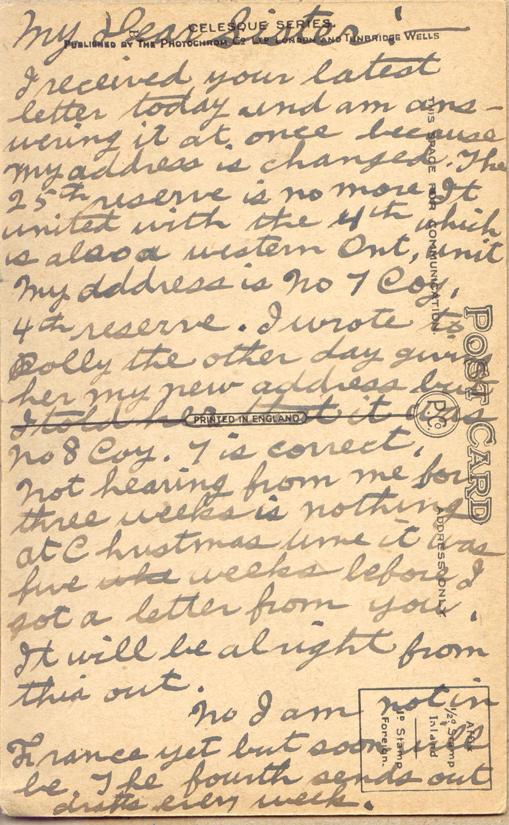 My Dear Sister :
I received your latest
letter today and am ans-
wering it at once because
my address is changed. The
25th reserve is no more. It
united with the 4th which
is also a western Ont, unit
My address is No 7 Coy,
4th reserve. I wrote to
Polly the other day giving
her my new address but
I told her that it was
No 8 Coy. 7 is correct,
Not hearing from me for
three weeks is nothing
at Christmas time it was
five weeks before I
got a letter from you.
It will be alright from
this out.
No I am not in
France yet but soon will
be. The fourth sends out
drafts every week.
CELESQUE SERIES.
PUBLISHED BY THE PHOTOCHROM CO LTD LONDON AND TUNBRIDGE WELLS
THIS SPACE FOR COMMUNICATION.
POST CARD
PRINTED IN ENGLAND
ADDRESS ONLY
1/2D Stamp
Inland
1D Stamp
Foreign.